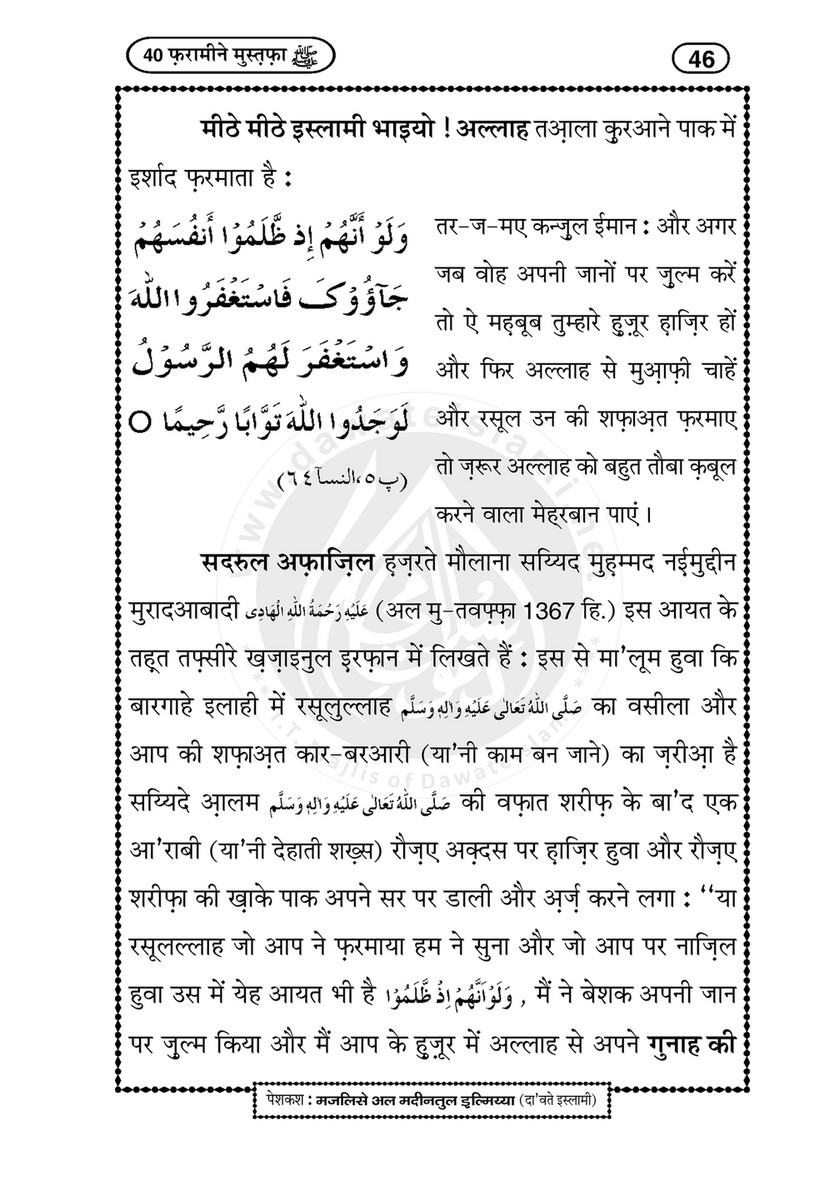 40 फ़रामीने मुस्त़फ़ा ﷺ
46
मीठे मीठे इस्लामी भाइयो ! अल्लाह तआ़ला कु़रआने पाक में
इर्शाद फ़रमाता है :
وَلَوْ أَنَّهُمْ إِذ ظَّلَمُوْا أَنفُسَهُمْ
جَآؤُوْكَ فَاسْتَغْفَرُوا اللّٰهَ
وَاسْتَغْفَرَ لَهُمُ الرَّسُوْلُ
لَوَجَدُوا اللّٰهَ تَوَّابًا رَّحِيمًا ○
(پ٥،النسآ٦٤)
तर-ज-मए कन्ज़ुल ईमान : और अगर
जब वोह अपनी जानों पर ज़ुल्म करें
तो ऐ मह़बूब तुम्हारे ह़ुज़ूर ह़ाज़िर हों
और फिर अल्लाह से मुआ़फ़ी चाहें
और रसूल उन की शफ़ाअ़त फ़रमाए
तो ज़रूर अल्लाह को बहुत तौबा क़बूल
करने वाला मेह्‌रबान पाएं ।
सदरुल अफ़ाज़िल ह़ज़रते मौलाना सय्यिद मुह़म्मद नईमुद्दीन
मुरादआबादी عَلَيْهِ رَحْمَةُ اللهِ الْهَادِى (अल मु-तवफ़्फ़ा 1367 हि.) इस आयत के
तह़्त तफ़्सीरे ख़ज़ाइनुल इ़रफ़ान में लिखते हैं : इस से मा'लूम हुवा कि
बारगाहे इलाही में रसूलुल्लाह صَلَّى اللهُ تَعَالٰى عَلَيْهِ وَاٰلِهٖ وَسَلَّم का वसीला और
आप की शफ़ाअ़त कार-बरआरी (या'नी काम बन जाने) का ज़रीआ़ है
सय्यिदे आ़लम صَلَّى اللهُ تَعَالٰى عَلَيْهِ وَاٰلِهٖ وَسَلَّم की वफ़ात शरीफ़ के बा'द एक
आ'राबी (या'नी देहाती शख़्स) रौज़ए अक़्दस पर ह़ाज़िर हुवा और रौज़ए
शरीफ़ा की ख़ाके पाक अपने सर पर डाली और अ़र्ज़ करने लगा : ‘‘या
रसूलल्लाह जो आप ने फ़रमाया हम ने सुना और जो आप पर नाज़िल
हुवा उस में येह आयत भी है وَلَوْ اَنَّهُمْ اِذْ ظَّلَمُوْا , मैं ने बेशक अपनी जान
पर ज़ुल्म किया और मैं आप के ह़ुज़ूर में अल्लाह से अपने गुनाह की
पेशकश : मजलिसे अल मदीनतुल इ़ल्मिय्या (दा'वते इस्लामी)
www.dawateislami.net
I.T. Majlis of DawateIslami